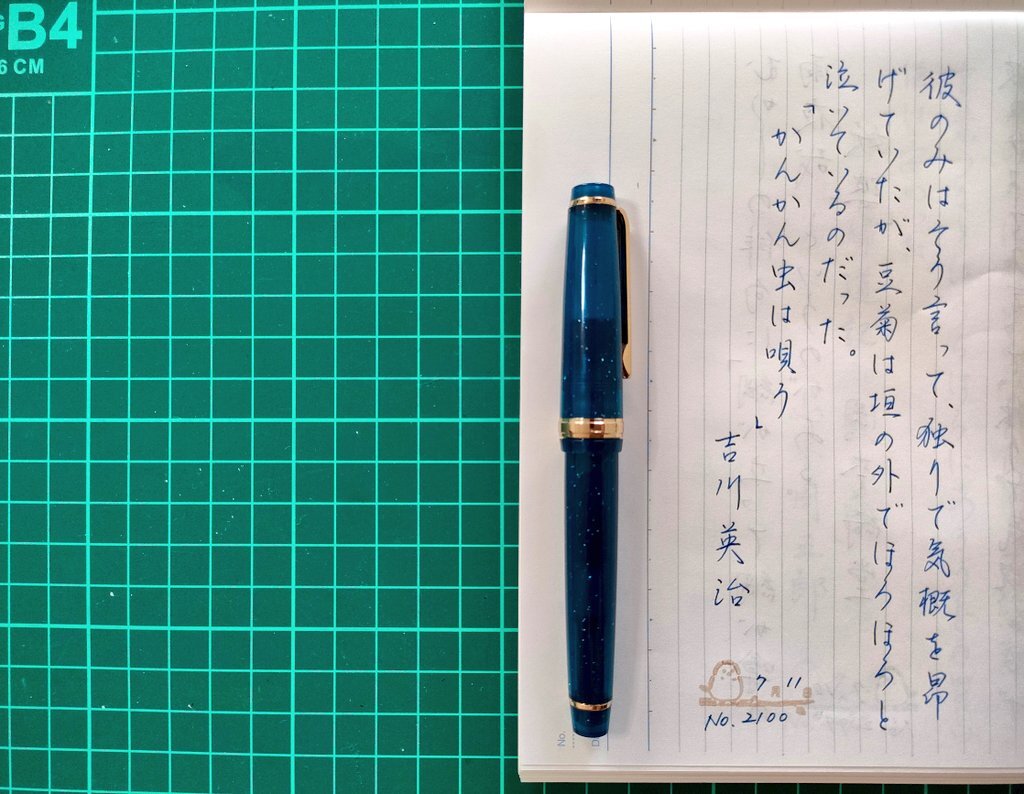 B4
6 CM
彼のみはそう言って、独りで気概を昂
げていたが、豆菊は垣の外でほろほろと
泣いているのだった。
「かんかん虫は唄う」
吉川英治
7月11日
No. 2100
No.